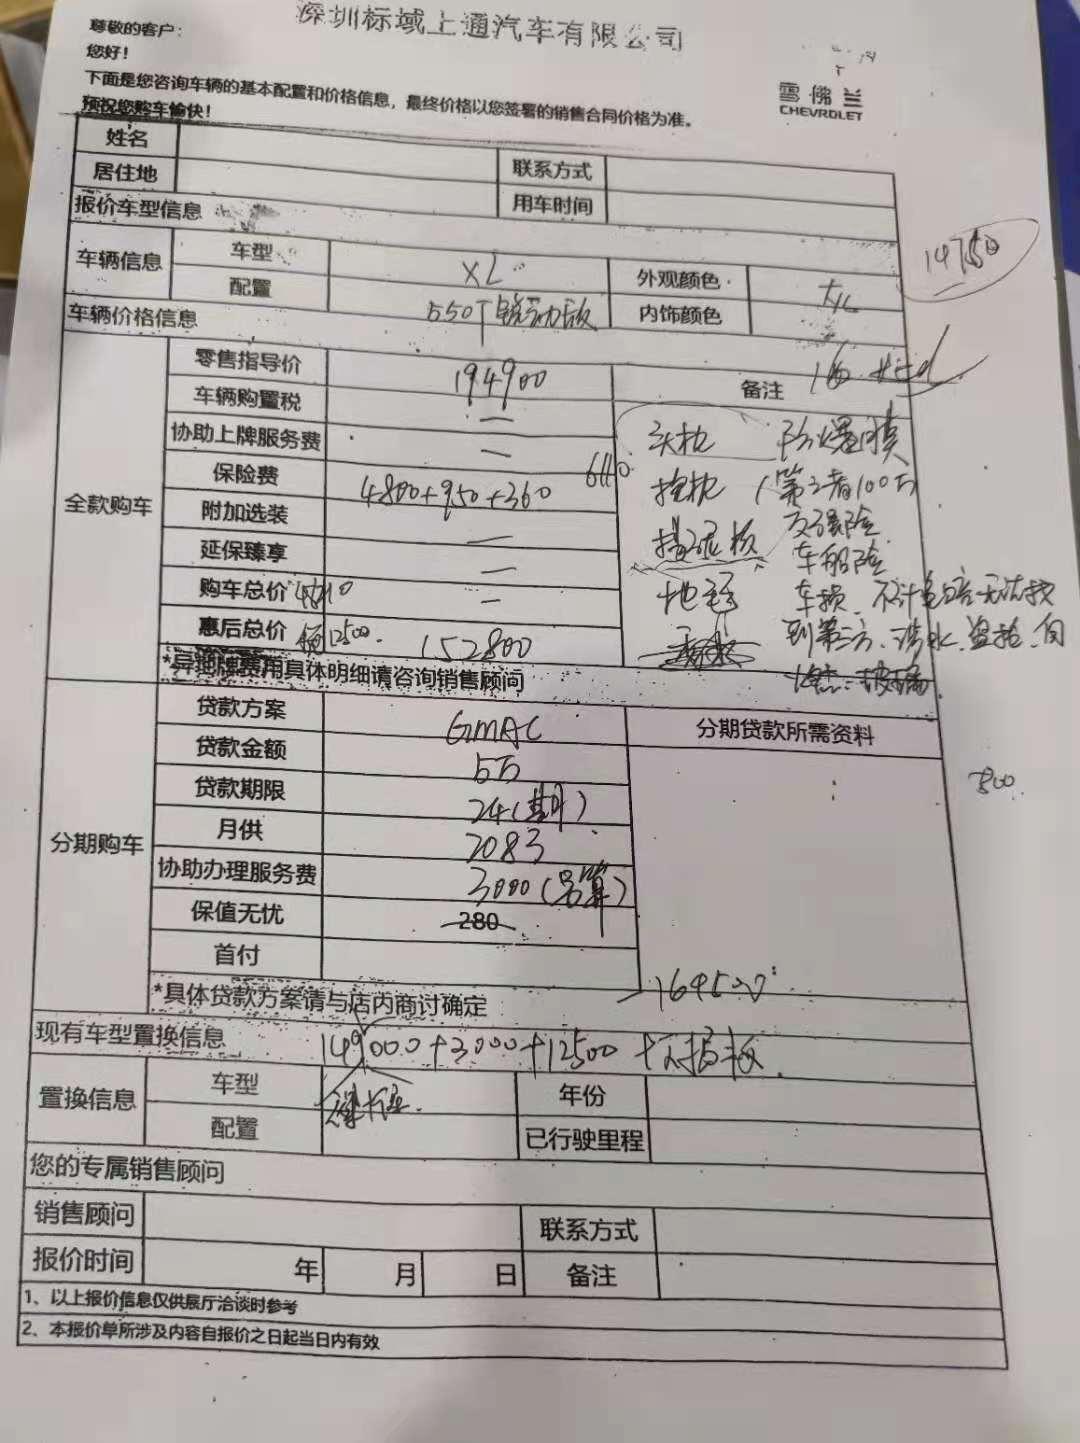 深圳标域上通汽车有限公司
尊敬的客户：
您好！
下面是您咨询车辆的基本配置和价格信息，最终价格以您签署的销售合同价格为准。
预祝您购车愉快！
雪佛兰
CHEVROLET
姓名 联系方式
居住地 用车时间
报价车型信息
14750
车辆信息 车型 XL 外观颜色
配置 550T锐动版 内饰颜色
车辆价格信息
全款购车
零售指导价 194900 备注
车辆购置税 —
协助上牌服务费 —
保险费 4800+950+360 6110
附加选装 —
延保臻享 —
购车总价 —
惠后总价 12500 152800
头枕 防爆膜
第三者100万
交强险
车船险
车损 不计免赔 无法找
到第三方、涉水、盗抢、
玻璃
*异地牌费用具体明细请咨询销售顾问
分期购车
贷款方案 GMAC 分期贷款所需资料
贷款金额 5万
贷款期限 24(期)
月供 2083
协助办理服务费 3000(另算)
保值无忧 280
首付
*具体贷款方案请与店内商讨确定
164500
现有车型置换信息 149000+3000+12500
置换信息 车型 年份
配置 已行驶里程
您的专属销售顾问
销售顾问 联系方式
报价时间 年 月 日 备注
1、以上报价信息仅供展厅洽谈时参考
2、本报价单所涉及内容自报价之日起当日内有效